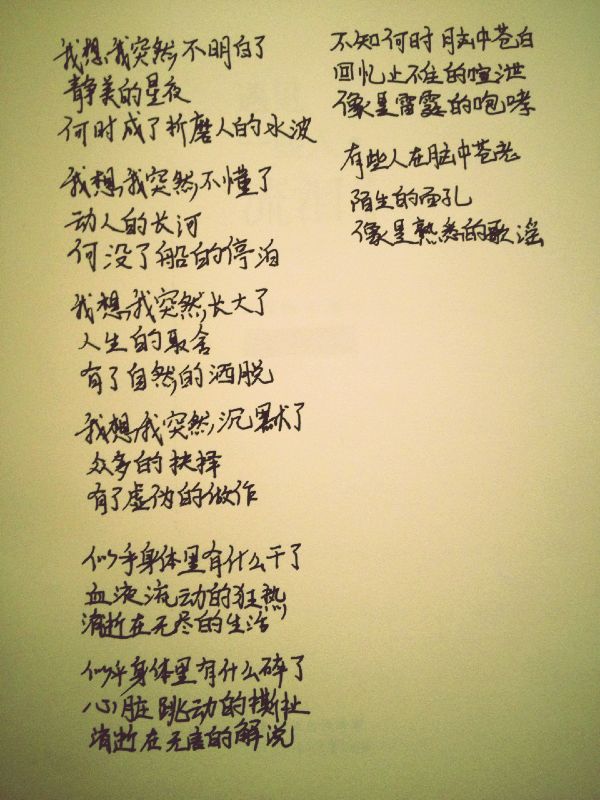 我想,我突然不明白了
静美的星夜
何时成了折磨人的水波
我想,我突然不懂了
动人的长河
何没了船的停泊
我想,我突然长大了
人生的取舍
有了自然的洒脱
我想,我突然沉默了
众多的抉择
有了虚伪的做作
似乎身体里有什么干了
血液流动的狂热
消逝在无尽的生活
似乎身体里有什么碎了
心脏跳动的撕扯
消逝在无害的解说
不知何时脑中苍白
回忆止不住的喧泄
像是雷霆的咆哮
有些人在脑中苍老
陌生的面孔
像是熟悉的歌谣